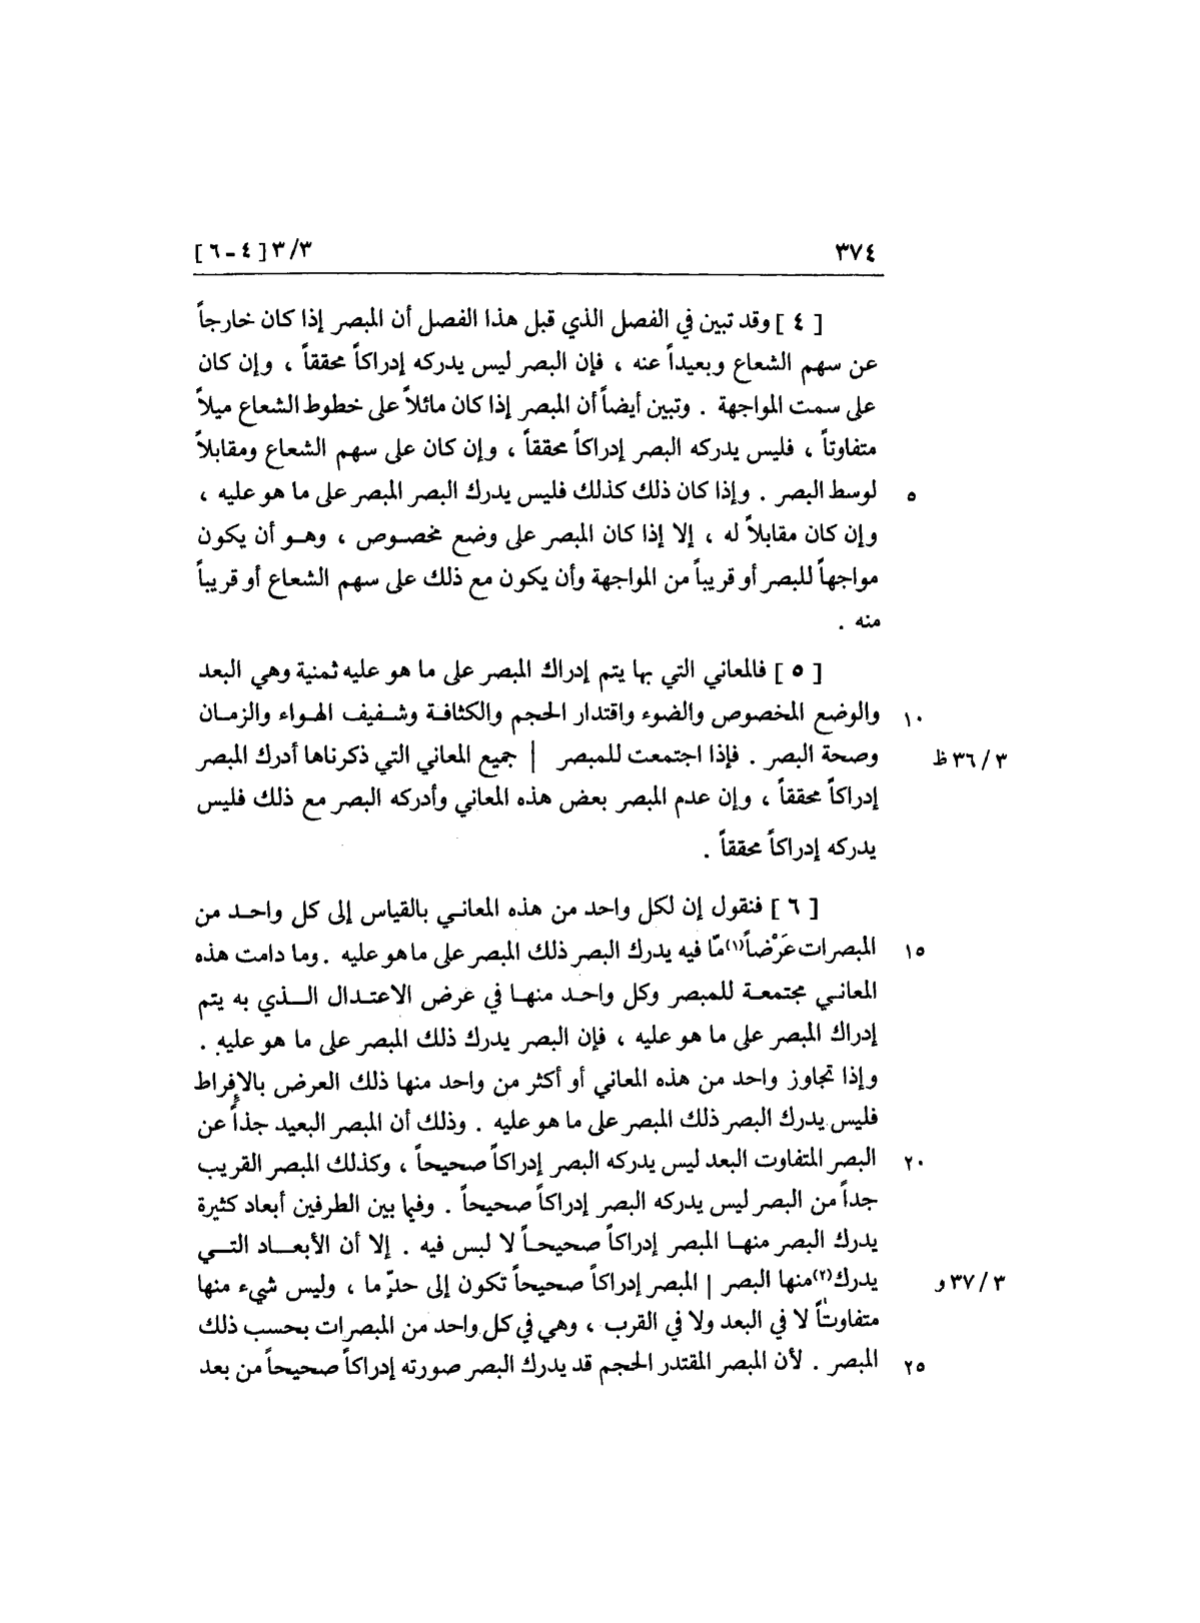 ٣٧٤
٣/٣ [٤ - ٦]
[ ٤ ] وقد تبين في الفصل الذي قبل هذا الفصل أن المبصر إذا كان خارجاً
عن سهم الشعاع وبعيداً عنه ، فإن البصر ليس يدركه إدراكاً محققاً ، وإن كان
على سمت المواجهة . وتبين أيضاً أن المبصر إذا كان مائلاً على خطوط الشعاع ميلاً
متفاوتاً ، فليس يدركه البصر إدراكاً محققاً ، وإن كان على سهم الشعاع ومقابلاً
٥ لوسط البصر . وإذا كان ذلك كذلك فليس يدرك البصر المبصر على ما هو عليه ،
وإن كان مقابلاً له ، إلا إذا كان المبصر على وضع مخصوص ، وهو أن يكون
مواجهاً للبصر أو قريباً من المواجهة وأن يكون مع ذلك على سهم الشعاع أو قريباً
منه .
[ ٥ ] فالمعاني التي بها يتم إدراك المبصر على ما هو عليه ثمنية وهي البعد
١٠ والوضع المخصوص والضوء واقتدار الحجم والكثافة وشفيف الهواء والزمان
٣ / ٣٦ ظ وصحة البصر . فإذا اجتمعت للمبصر | جميع المعاني التي ذكرناها أدرك المبصر
إدراكاً محققاً ، وإن عدم المبصر بعض هذه المعاني وأدركه البصر مع ذلك فليس
يدركه إدراكاً محققاً .
[ ٦ ] فنقول إن لكل واحد من هذه المعاني بالقياس إلى كل واحد من
١٥ المبصرات عَرْضاً(١) مّا فيه يدرك البصر ذلك المبصر على ما هو عليه . وما دامت هذه
المعاني مجتمعة للمبصر وكل واحد منها في عرض الاعتدال الذي به يتم
إدراك المبصر على ما هو عليه ، فإن البصر يدرك ذلك المبصر على ما هو عليه .
وإذا تجاوز واحد من هذه المعاني أو أكثر من واحد منها ذلك العرض بالإفراط
فليس يدرك البصر ذلك المبصر على ما هو عليه . وذلك أن المبصر البعيد جداً عن
٢٠ البصر المتفاوت البعد ليس يدركه البصر إدراكاً صحيحاً ، وكذلك المبصر القريب
جداً من البصر ليس يدركه البصر إدراكاً صحيحاً . وفيما بين الطرفين أبعاد كثيرة
يدرك البصر منها المبصر إدراكاً صحيحاً لا لبس فيه . إلا أن الأبعاد التي
٣ / ٣٧ و يدرك(٢) منها البصر | المبصر إدراكاً صحيحاً تكون إلى حدٍّ ما ، وليس شيء منها
متفاوتاً لا في البعد ولا في القرب ، وهي في كل واحد من المبصرات بحسب ذلك
٢٥ المبصر . لأن المبصر المقتدر الحجم قد يدرك البصر صورته إدراكاً صحيحاً من بعد